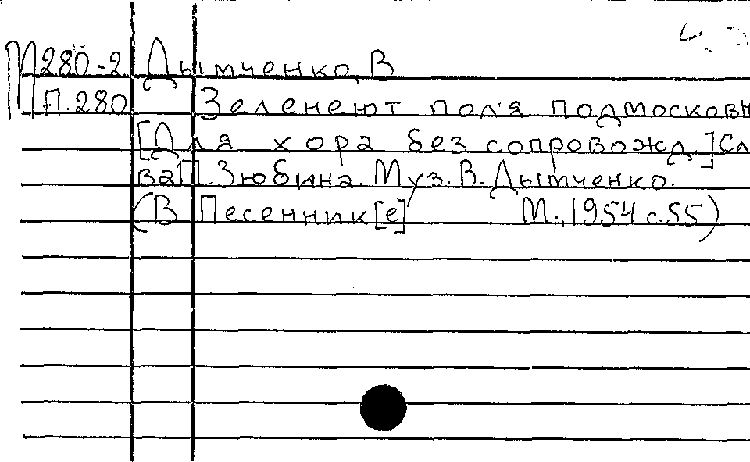 М280-2 Дымченко, В
П.280 Зеленеют поля подмосковн
[Для хора без сопровожд.] Сл
ва П. Зюбина. Муз. В. Дымченко.
(В Песенник[е] М., 1954 с. 55)